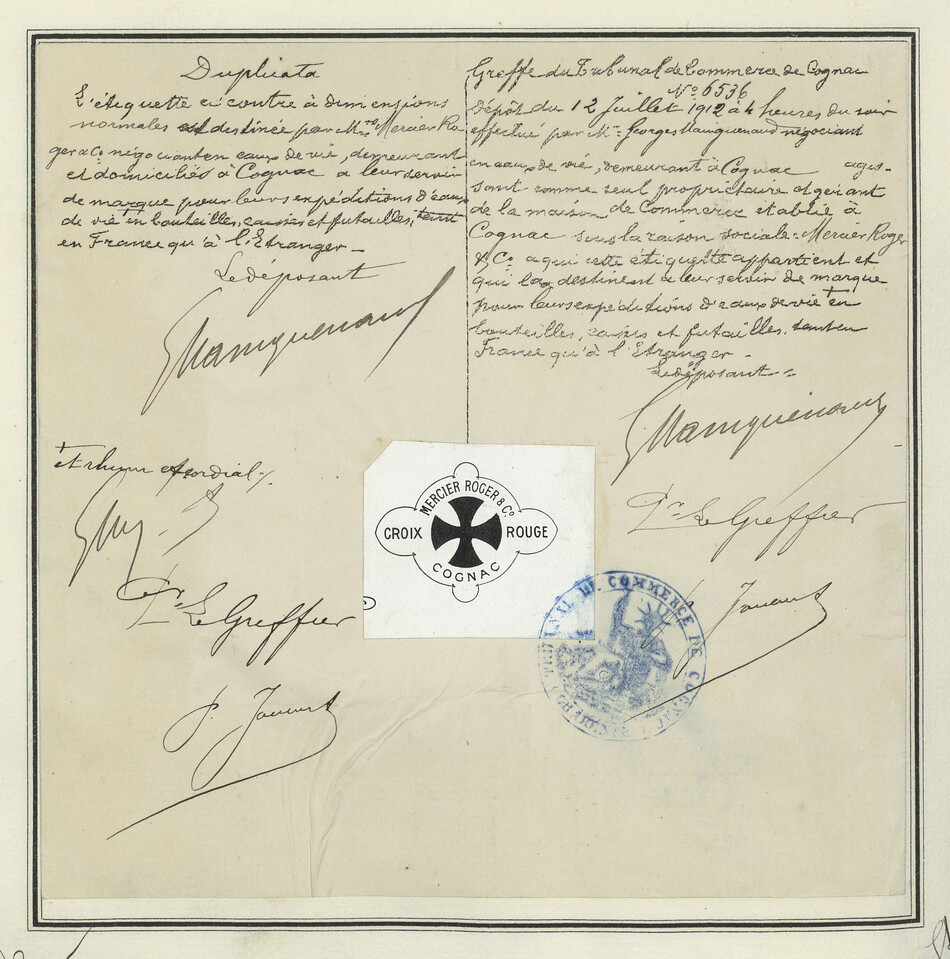 Duplicata
L'étiquette ci contre à dimensions
normales est destinée par M.rs Mercier Ro
ger & Co négociants en eaux de vie, demeurant
et domiciliés à Cognac à leur servir
de marque pour leurs expéditions d'eaux
de vie en bouteilles, caisses et futailles, tant
en France qu'à l'Etranger _
Le déposant
et rhum
Pr. Le Greffier
Greffe du Tribunal de Commerce de Cognac
No. 6536
Dépôt du 12 Juillet 1912 à 4 heures du soir
effectué par Mr. Georges négociant
en eaux de vie, demeurant à Cognac agis-
sant comme seul propriétaire et gérant
de la maison de Commerce établie à
Cognac sous la raison sociale: Mercier Roger
& Co. a qui cette étiquette appartient et
qui la destinent à leur servir de marque
pour leurs expéditions d'eaux de vie en
bouteilles, caisses et futailles, tant en
France qu'à l'Etranger _
Le déposant
Pr. Le Greffier
MERCIER ROGER & Co.
CROIX ROUGE
COGNAC
TRIBUNAL DE COMMERCE DE COGNAC